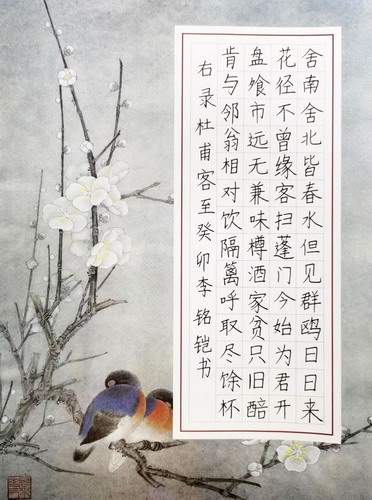 舍南舍北皆春水但见群鸥日日来
花径不曾缘客扫蓬门今始为君开
盘飧市远无兼味樽酒家贫只旧醅
肯与邻翁相对饮隔篱呼取尽馀杯
右录杜甫客至癸卯李铭铠书